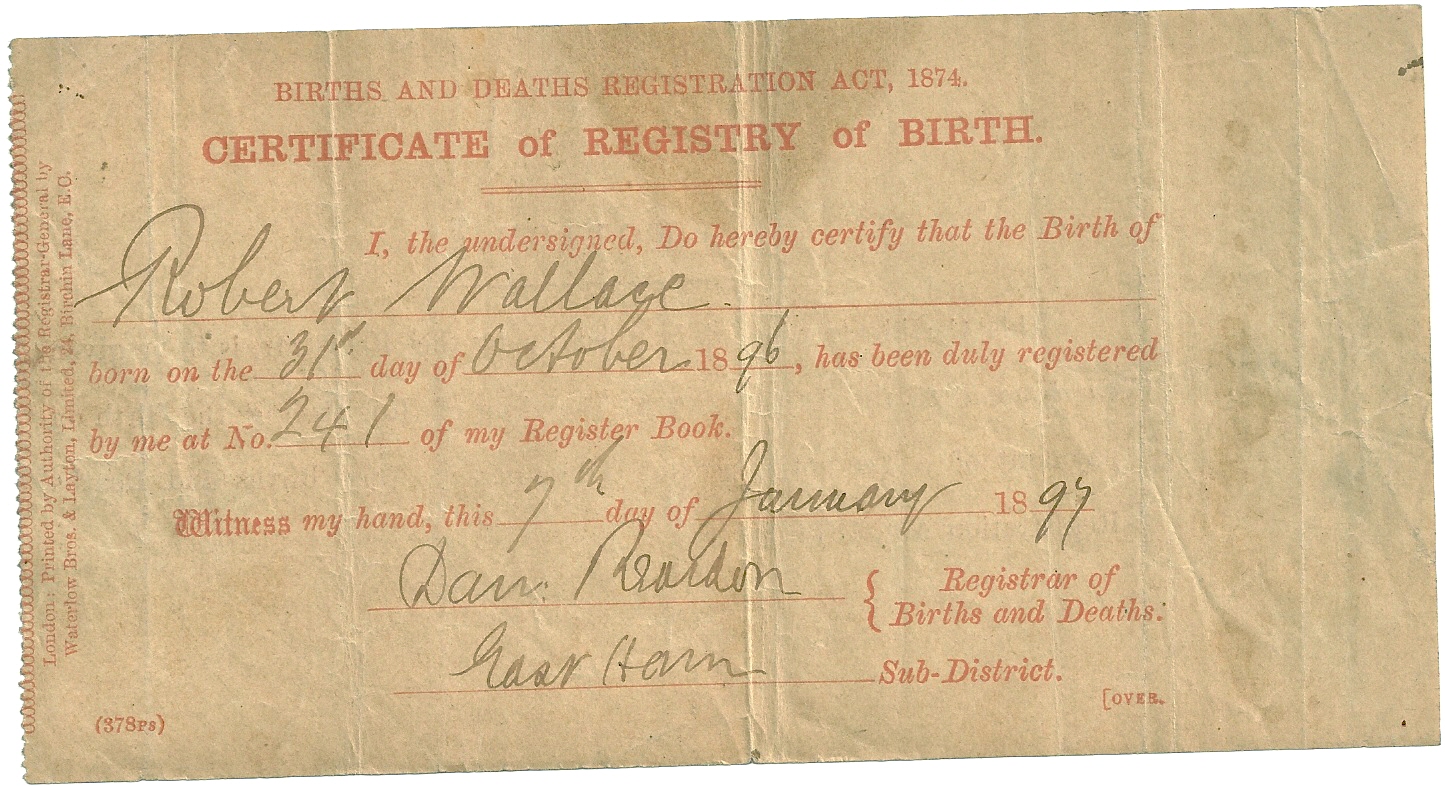 BIRTHS AND DEATHS REGISTRATION ACT, 1874.
CERTIFICATE of REGISTRY of BIRTH.
I, the undersigned, Do hereby certify that the Birth of
Robert Wallace.
born on the 31st day of October 1896, has been duly registered
by me at No. 241 of my Register Book.
Witness my hand, this 7th day of January 1897
Dan: Reardon { Registrar of
Births and Deaths.
East Ham Sub-District.
[OVER.
(378PS)
London: Printed by Authority of the Registrar-General by
Waterlow Bros. & Layton, Limited, 24, Birchin Lane, E.C.